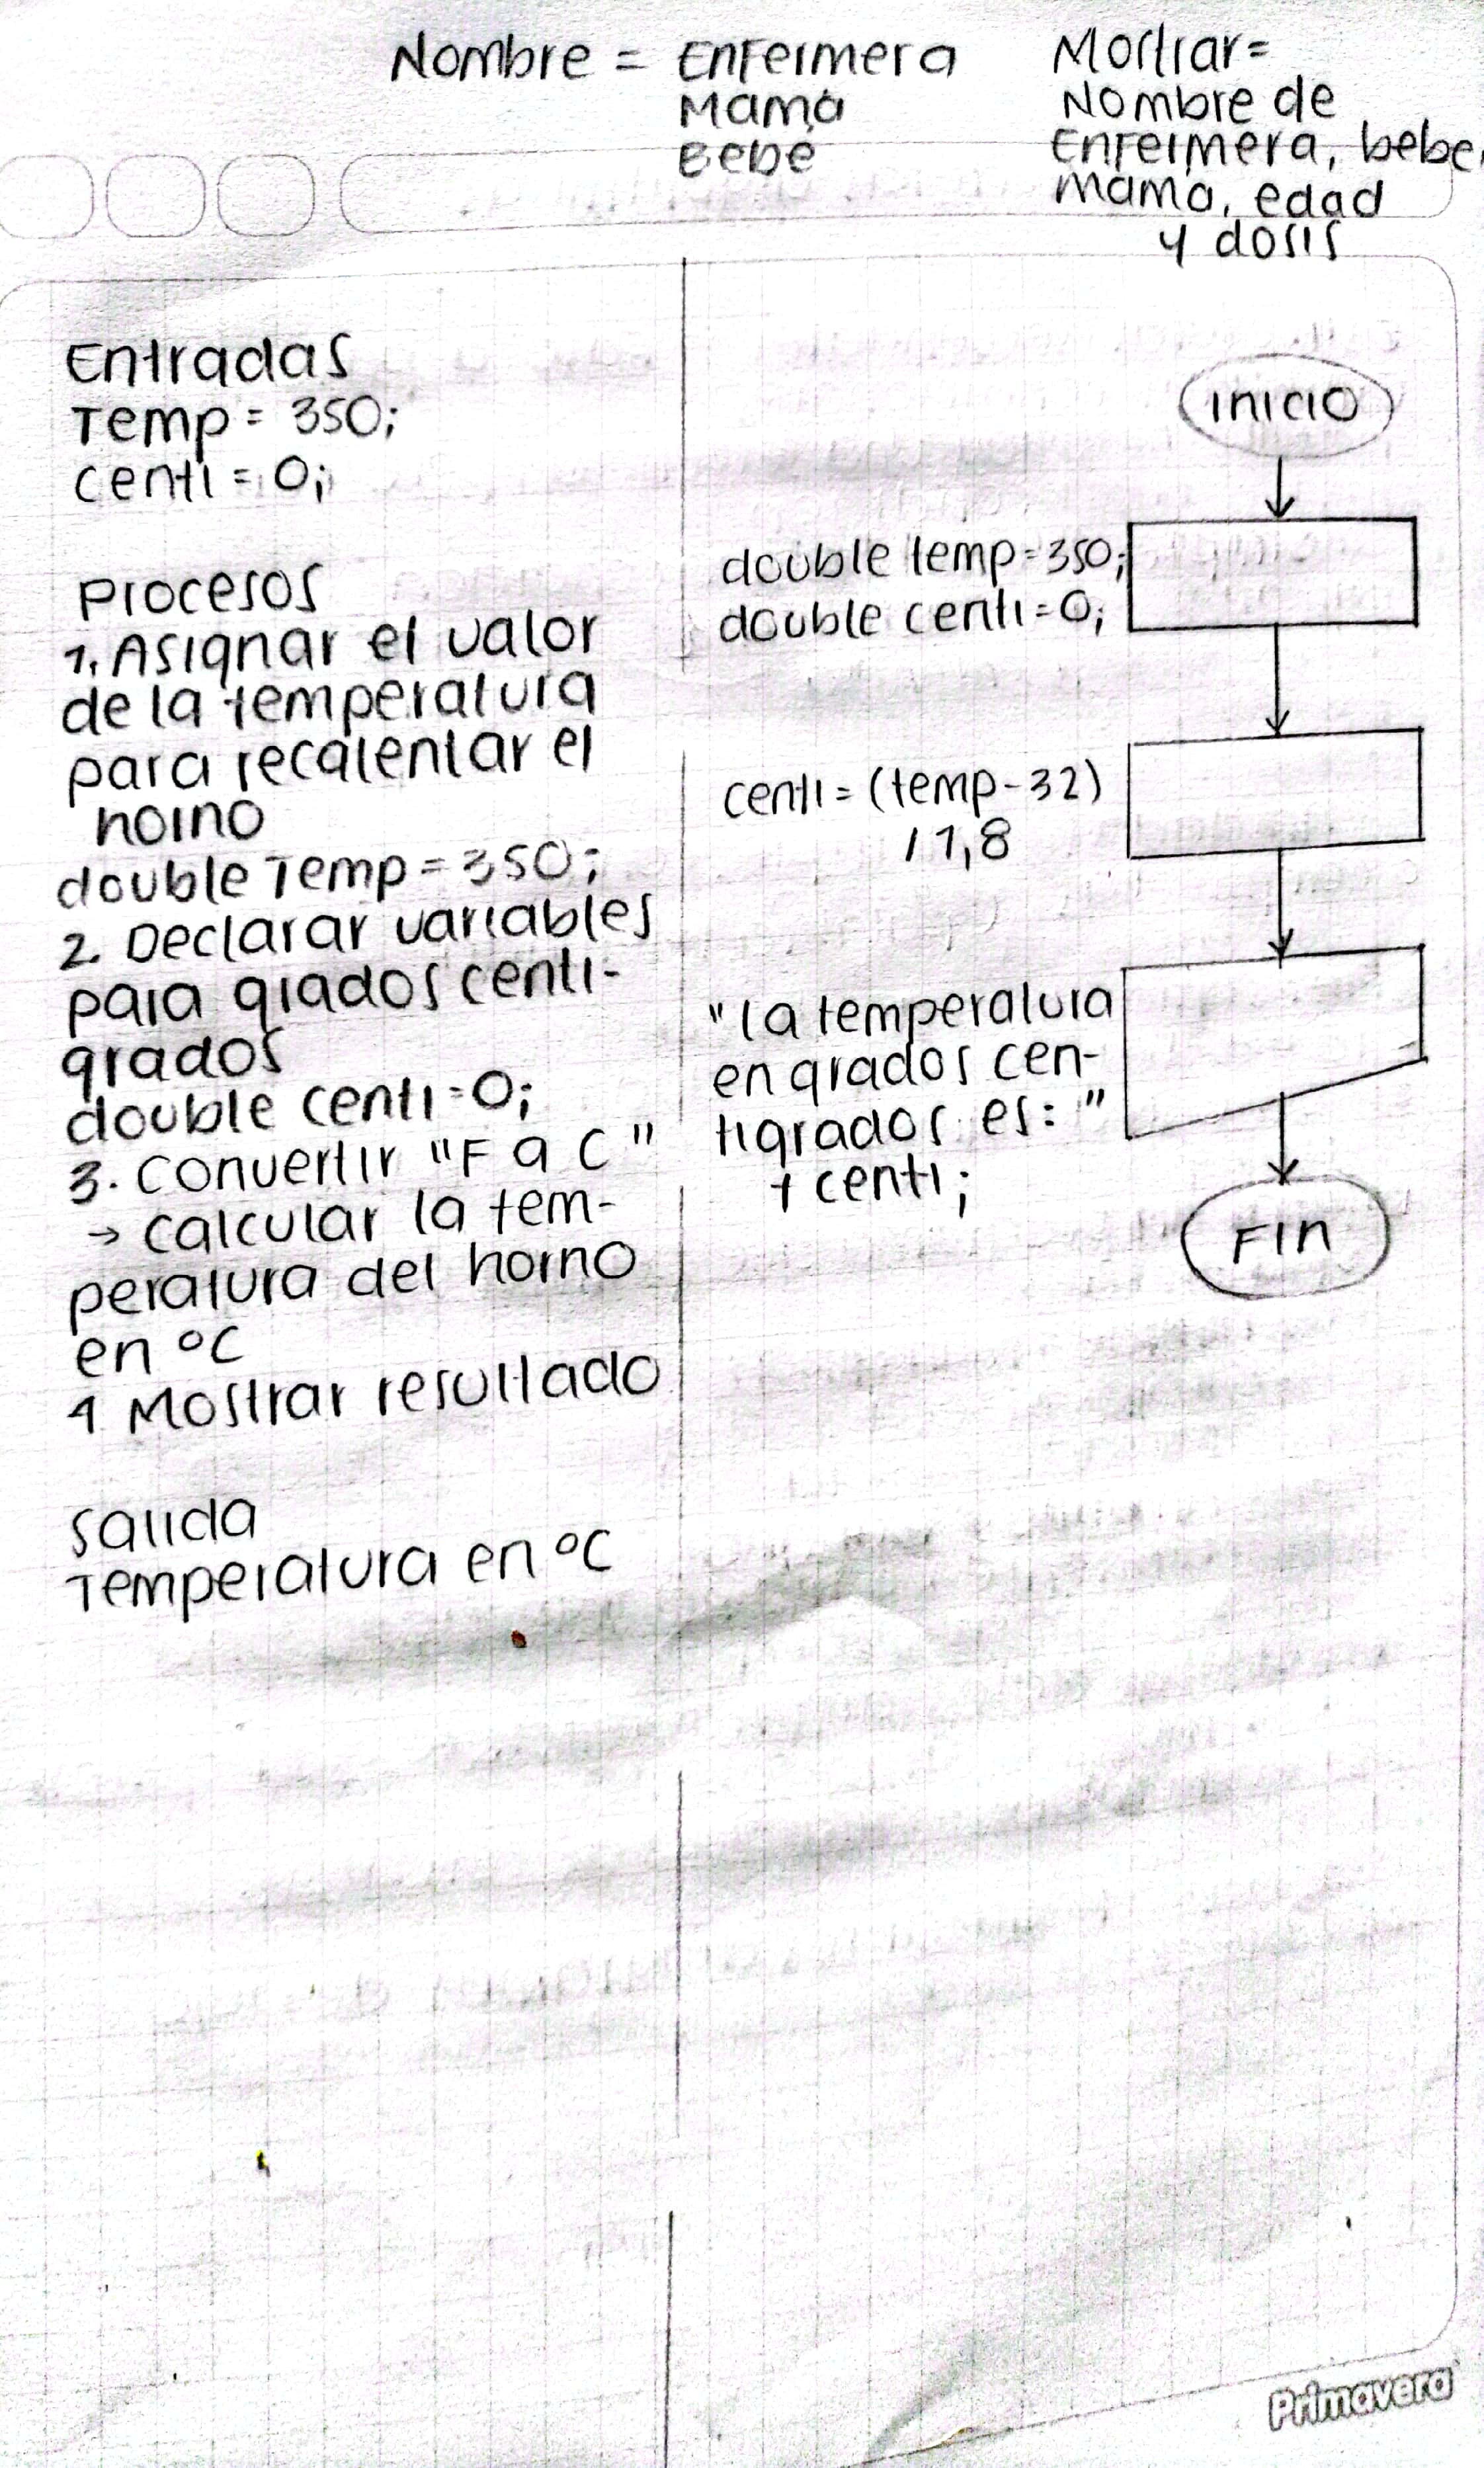 Nombre = Enfermera
Mamá
Bebé
Mostrar=
Nombre de
Enfermera, bebe,
mamá, edad
y dosis
Entradas
Temp = 350;
centi = 0;
Procesos
1. Asignar el valor
de la temperatura
para recalentar el
horno
double Temp = 350;
2. Declarar variables
para grados centi-
grados
double centi = 0;
3. Convertir "F a C"
→ calcular la tem-
peratura del horno
en °C
4 Mostrar resultado
Salida
Temperatura en °C
inicio
double temp = 350;
double centi = 0;
centi = (temp - 32)
/ 1,8
"la temperatura
en grados cen-
tigrados es: "
+ centi;
Fin
Primavera